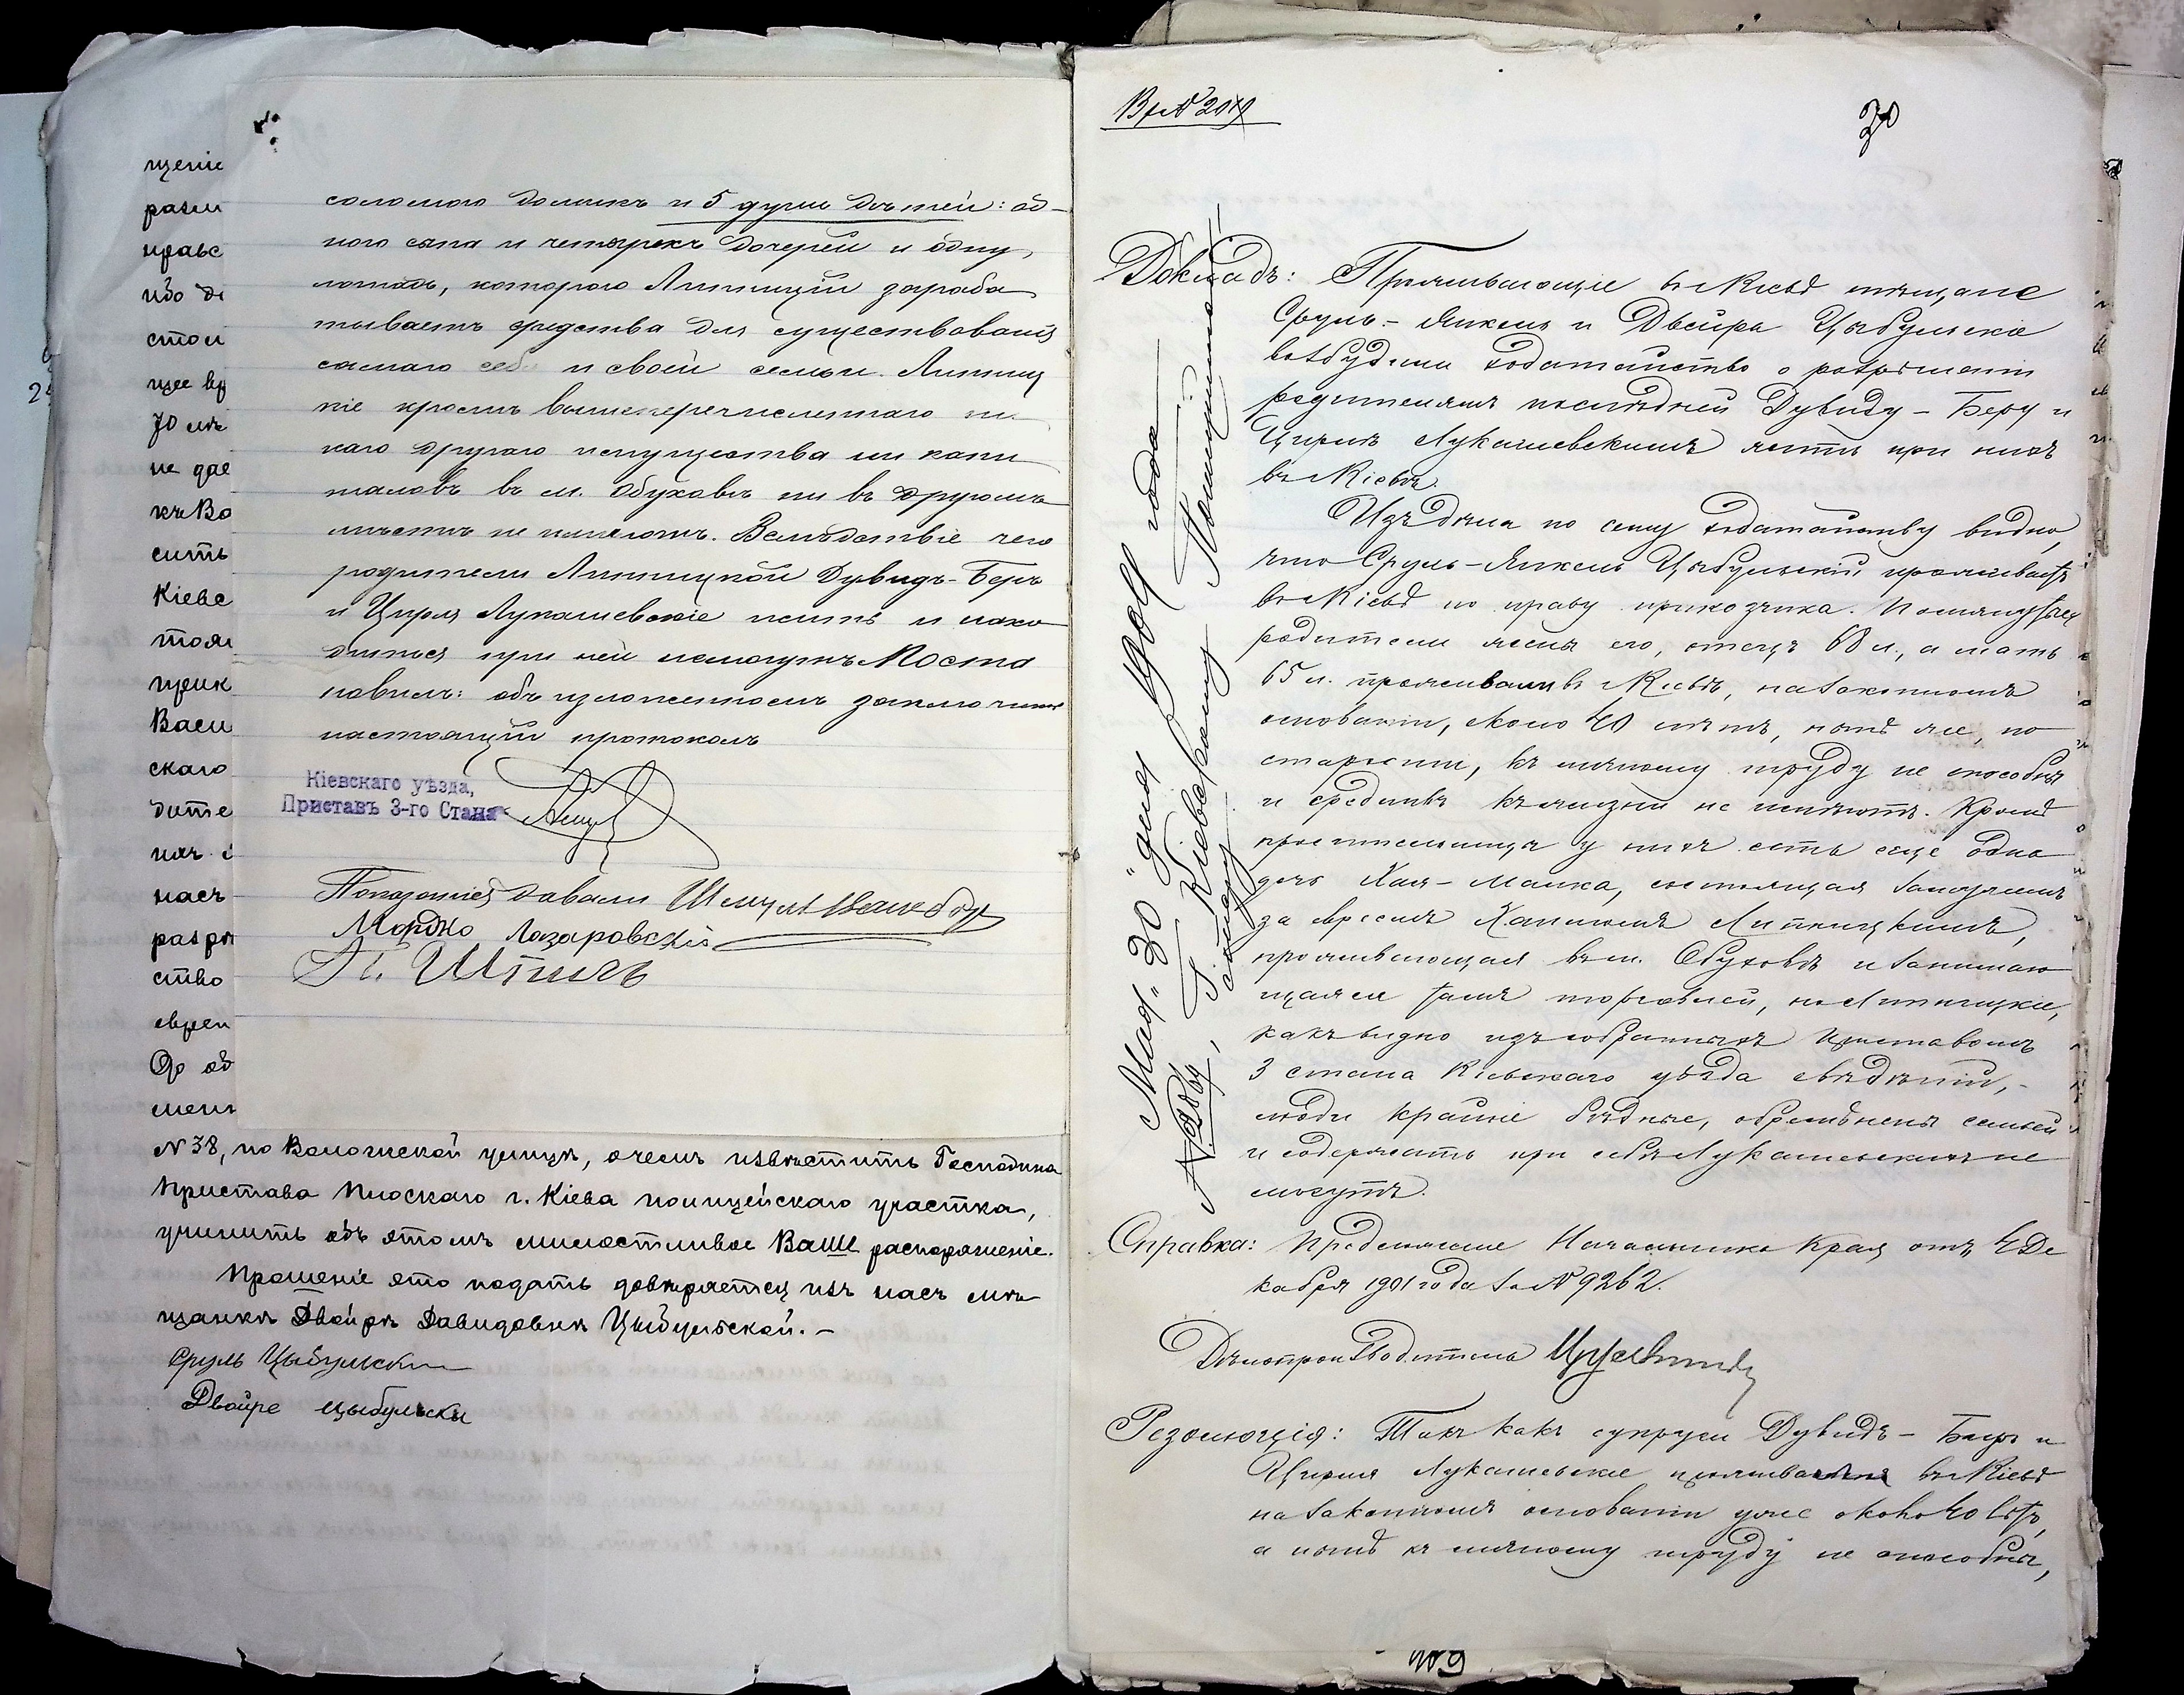 щеніе
разм
нравс
ибо де
стои
щее вр
70 лѣ
не дае
къ Ва
сить
Кіевс
тоя
прик
Васи
скаго
дите
насъ
разрѣ
ство
евреи
До об
мен
соломою домикъ и 5 душъ дѣтей: од-
ного сына и четырехъ дочерей и одну
лошадь, которою Липницкій зараба
тываетъ средства для существованія
самаго себя и своей семьи. Липниц
кіе кромѣ вышеперечисленнаго ни
каго другаго имущества ни капи
таловъ въ м. Обуховѣ ни въ другомъ
мѣстѣ не имѣютъ. Вслѣдствіе чего
родители Липницкой Дувидъ-Беръ
и Цирля Лукашевскіе жить и нахо
диться при ней немогутъ. Поста
новилъ: объ изложенномъ заключить
настоящій протоколъ
Кіевскаго уѣзда,
Приставъ 3-го Стана
Показанія давали Шмуль
Мордко Лазаровскій
№ 38, по Волошской улицѣ, о чемъ извѣстить Господина
Пристава Плоскаго г. Кіева полицейскаго участка,
учинить объ этомъ милостивое Ваше распоряженіе.
Прошеніе это подать довѣряется изъ насъ мѣ
щанкѣ Двойрѣ Давидовнѣ Цыбульской.-
Сруль Цыбульски
Двойре цыбульски
Вх № 2049
70
Мая "30" дня 1904 года
№ 2864, Г. Кіевскому Полицій
Докладъ: Проживающіе въ Кіевѣ мѣщане
Сруль-Янкель и Двейра Цыбульскіе
возбудили ходатайство о разрѣшеніи
родителямъ послѣдней Дувиду-Беру и
Цирлѣ Лукашевскимъ жить при нихъ
въ Кіевѣ.
Изъ дѣла по сему ходатайству видно,
что Сруль-Янкель Цыбульскій проживаетъ
въ Кіевѣ по праву приказчика. Помянутые
родители жены его, отецъ 68 л., а мать
65 л. проживали въ Кіевѣ, на законномъ
основаніи, около 40 лѣтъ, нынѣ же, по
старости, къ личному труду не способны
и средствъ къ жизни не имѣютъ. Кромѣ
просительницы у нихъ есть еще одна
дочь Хая-Малка, состоящая замужемъ
за евреемъ Липницкимъ,
проживающая въ м. Обуховѣ и занимаю
щаяся тамъ торговлей, но Липницкіе,
какъ видно изъ собранныхъ Приставомъ
3 стана Кіевскаго уѣзда свѣдѣній,-
люди крайне бѣдные, обременены семьей
и содержать при себѣ Лукашевскихъ не
могутъ.
Справка: Предложеніе Начальника Края отъ 4 Де
кабря 1901 года за № 9262.
Дѣлопроизводитель
Резолюція: Такъ какъ супруги Дувидъ-Беръ и
Цирля Лукашевскіе проживали въ Кіевѣ
на законномъ основаніи уже около 40 лѣтъ,
а нынѣ къ личному труду не способны,